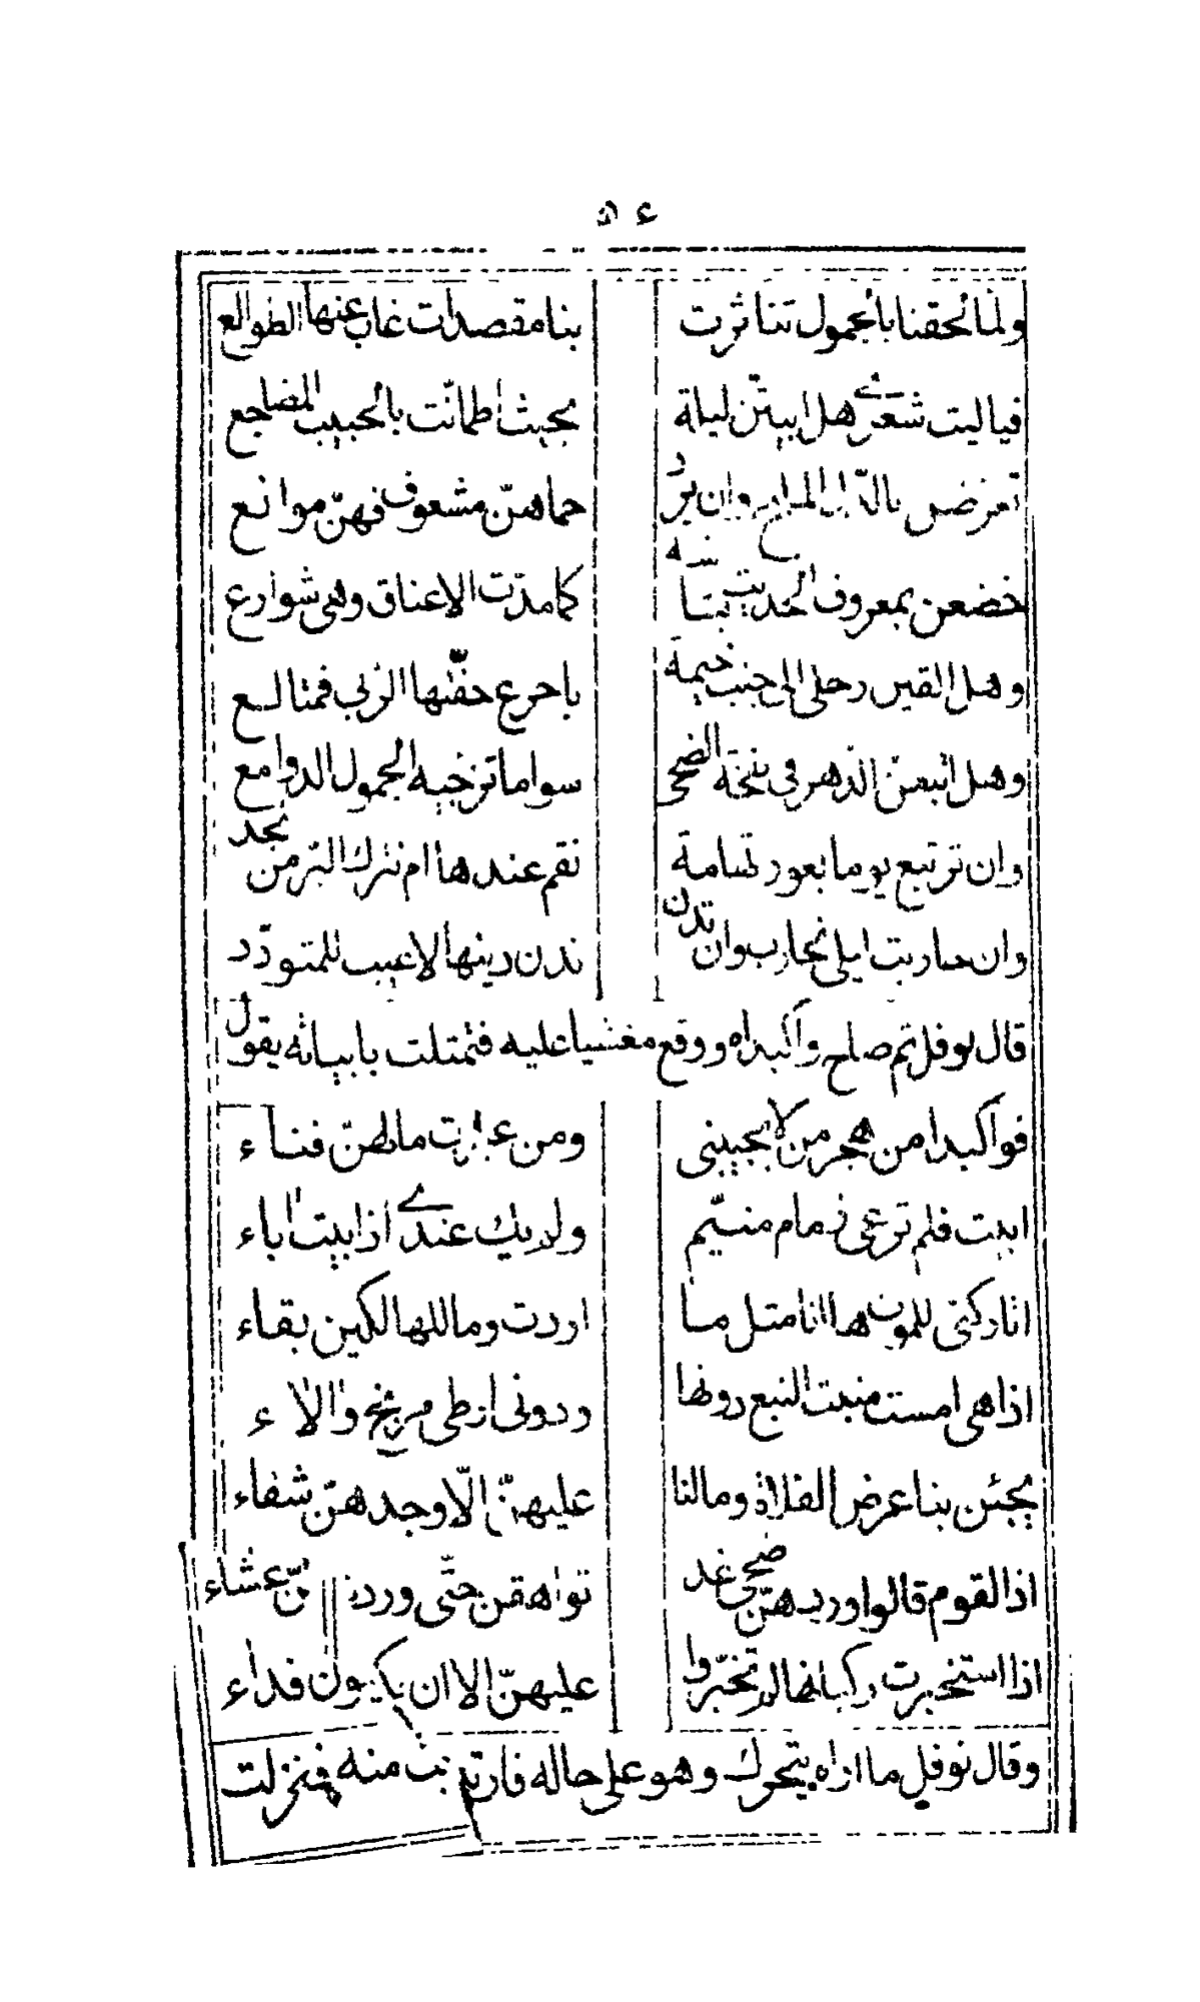 ٥٤
ولما لحقنا بالحمول تناثرت بنا مقصدات غاب عنها الطوالع
فيا ليت شعرى هل ابيتن ليلة بحيث اطمانت بالحبيب المضاجع
تعرضن بالدل المليح وان يرد حماهن مشعوف فهن موانع
خضعن بمعروف الحديث بشاشة كما مدت الاعناق وهى شوارع
وهل القين رحلى الى جنب خيمة باجرع حفتها الربى فمتالع
وهل اتبعن الدهر فى نتخة الضحى سواما تزجيه الحمول الدوامع
وان ترتبع يوما بغور تهامة نقم عندها ام نترك البر من نجد
وان حاربت ليلى نحارب وان تدن ندن دينها لا عيب للمتودد
قال نوفل ثم صاح واكبداه ووقع مغشيا عليه فتمثلت بابياته يقول
فواكبدا من هجر من لا يجيبنى ومن عبرت ما لهن فناء
ابيت فلم ترعى ذمام متيم ولم يك عندى اذ ابيت اباء
اتاركتى للموت ها انا مثل ما اردت وما للهالكين بقاء
اذا هى امست منبت النبع دونها ودونى ارطى مريخ والالاء
يجئن بنا عرض الفلاة وما لنا عليهن الا وجدهن شفاء
اذا القوم قالوا وردهن ضحى غد تواهقن حتى وردهن عشاء
اذا استخبرت ركبانها لم تخبروا عليهن الا ان يكون فداء
وقال نوفل ما اراه يتحرك وهو على حاله فارتبت منه فنزلت